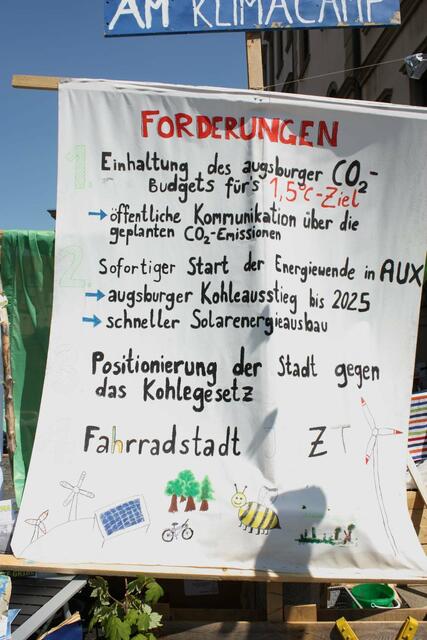 AM KLIMACAMP
FORDERUNGEN
1. Einhaltung des augsburger CO₂-
Budgets fürs 1,5°C-Ziel
→ öffentliche Kommunikation über die
geplanten CO₂-Emissionen
2. Sofortiger Start der Energiewende in AUX
→ augsburger Kohleausstieg bis 2025
→ schneller Solarenergieausbau
Positionierung der Stadt gegen
das Kohlegesetz
Fahrradstadt J Z T